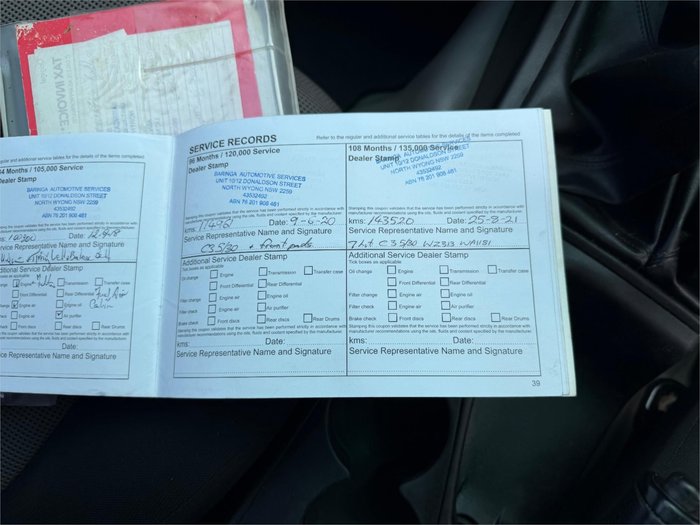 TAX INVOICE
SERVICE RECORDS
Refer to the regular and additional service tables for the details of the items completed
84 Months / 105,000 Service
Dealer Stamp
BARINGA AUTOMOTIVE SERVICES
UNIT 10/12 DONALDSON STREET
NORTH WYONG NSW 2259
43532492
ABN 76 201 908 461
Date:
Service Representative Name and Signature
Additional Service Dealer Stamp
Tick boxes as applicable
Engine
Transmission
Transfer case
Front Differential
Rear Differential
Engine air
Engine oil
Air purifier
Front discs
Rear discs
Rear Drums
Date:
Service Representative Name and Signature
96 Months / 120,000 Service
Dealer Stamp
BARINGA AUTOMOTIVE SERVICES
UNIT 10/12 DONALDSON STREET
NORTH WYONG NSW 2259
43532492
ABN 76 201 908 461
Stamping this coupon validates that the service has been performed strictly in accordance with the manufacturer recommendations using the oils, fluids and coolant specified by the manufacturer.
kms: Date: 9-6-20
Service Representative Name and Signature
C35/30 + front pads
Additional Service Dealer Stamp
Tick boxes as applicable
Oil change Engine Transmission Transfer case
Front Differential Rear Differential
Filter change Engine air Engine oil
Filter check Engine air Air purifier
Brake check Front discs Rear discs Rear Drums
Stamping this coupon validates that the service has been performed strictly in accordance with manufacturer recommendations using the oils, fluids and coolant specified by the manufacturer.
kms: Date:
Service Representative Name and Signature
108 Months / 135,000 Service
Dealer Stamp
BARINGA AUTOMOTIVE SERVICES
UNIT 10/12 DONALDSON STREET
NORTH WYONG NSW 2259
43532492
ABN 76 201 908 461
Stamping this coupon validates that the service has been performed strictly in accordance with the manufacturer recommendations using the oils, fluids and coolant specified by the manufacturer.
kms: 143520 Date: 25-3-21
Service Representative Name and Signature
7 Lt C35/30 WZ313 WA1181
Additional Service Dealer Stamp
Tick boxes as applicable
Oil change Engine Transmission Transfer case
Front Differential Rear Differential
Filter change Engine air Engine oil
Filter check Engine air Air purifier
Brake check Front discs Rear discs Rear Drums
Stamping this coupon validates that the service has been performed strictly in accordance with manufacturer recommendations using the oils, fluids and coolant specified by the manufacturer.
kms: Date:
Service Representative Name and Signature
39